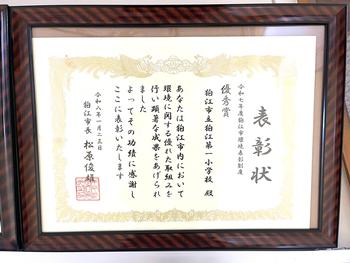 表彰状
令和七年度狛江市環境表彰制度
優秀賞
狛江市立狛江第一小学校 殿
あなたは狛江市内において
環境に関する優れた取組みを
行い顕著な成果をあげられ
ました
よってその功績に感謝し
ここに表彰いたします
令和八年一月二三日
狛江市長 松原俊雄